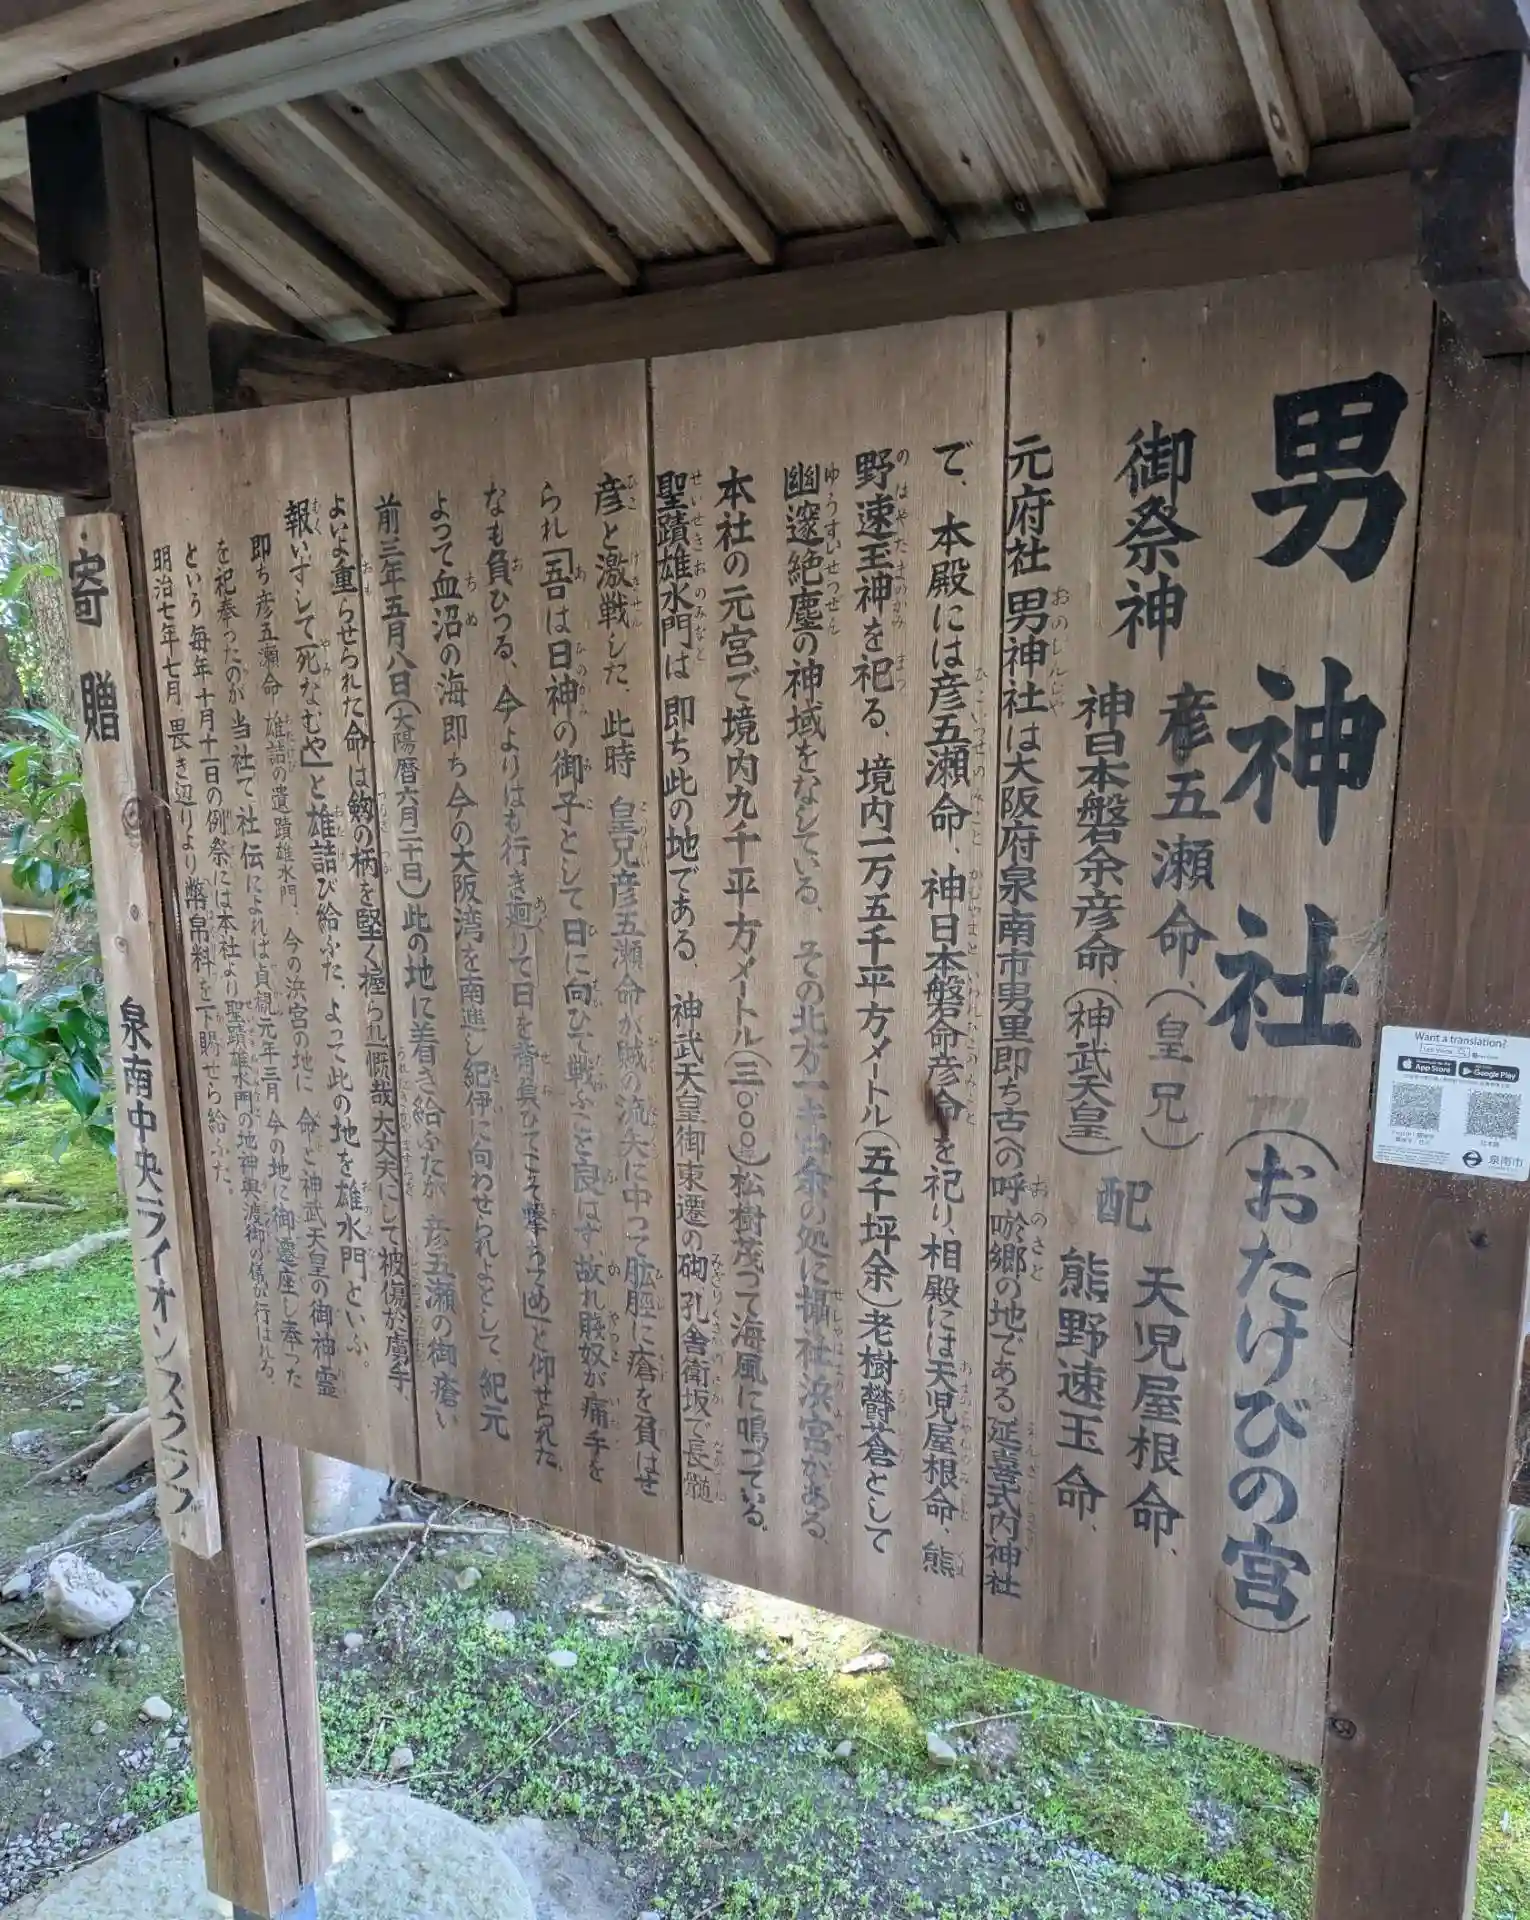 男神社(おたけびの宮)
御祭神
彦五瀬命、(皇兄)
神日本磐余彦命、(神武天皇)
配
天児屋根命、
熊野速玉命、
元府社男神社は大阪府泉南市男里即ち古への呼唹郷の地である 延喜式内神社
で、本殿には彦五瀬命、神日本磐命彦命を祀り、相殿には天児屋根命、熊
野速玉神を祀る、境内一万五千平方メートル(五千坪余)老樹欝蒼として
幽邃絶塵の神域をなしている、その北方一キロ余の処に摂社浜宮がある、
本社の元宮で境内九千平方メートル(三〇〇〇坪)松樹茂って海風に鳴っている。
聖蹟雄水門は 即ち此の地である、神武天皇御東遷の砌、孔舎衛坂で長髄
彦と激戦した、此時 皇兄彦五瀬命が賊の流矢に中って肱脛に瘡を負はせ
られ「吾は日神の御子として日に向ひて戦ふこと良はず、故れ賤奴が痛手を
なも負ひつる、今よりはも行き廻りて日を背負ひてこそ撃ちてめ」と仰せられた、
よって血沼の海即ち今の大阪湾を南進し紀伊に向わせられよとして、紀元
前三年五月八日(大陽暦六月二十日)此の地に着き給ふたが 彦五瀬の御瘡い
よいよ重らせられた命は劔の柄を堅く握られ慨哉大丈夫にして被傷於虜手、
報いずして死なむや」と雄詰び給ふた、よって此の地を雄水門といふ。
即ち彦五瀬命 雄詰の遺蹟雄水門、今の浜宮の地に 命と神武天皇の御神霊
を祀奉ったのが 当社で 社伝によれば貞観元年三月 今の地に御遷座し奉った
という 毎年十月十一日の例祭には本社より聖蹟雄水門の地神輿渡御の儀が行はれる、
明治七年七月 畏き辺りより幣帛料を下賜せら給ふた。
寄贈 泉南中央ライオンズクラブ
Want a translation?
App Store
Google Play
日本語
泉南市